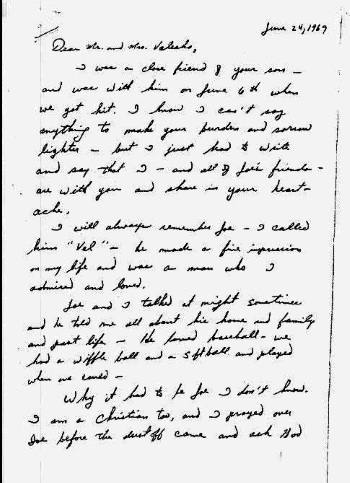 June 24, 1969
Dear Mr. and Mrs. Valesko,
I was a close friend of your son -
and was with him on June 6th when
we got hit. I know I can't say
anything to make your burden and sorrow
lighter - but I just had to write
and say that I - and all of Joe's friends -
are with you and share in your heart-
ache.
I will always remember Joe - I called
him "Val" - he made a fine impression
on my life and was a man who I
admired and loved.
Joe and I talked at night sometimes
and he told me all about his home and family
and past life - He loved baseball - we
had a wiffle ball and a softball and played
when we could -
Why it had to be Joe I don't know.
I am a Christian too, and I prayed over
Joe before the dustoff came and ask God